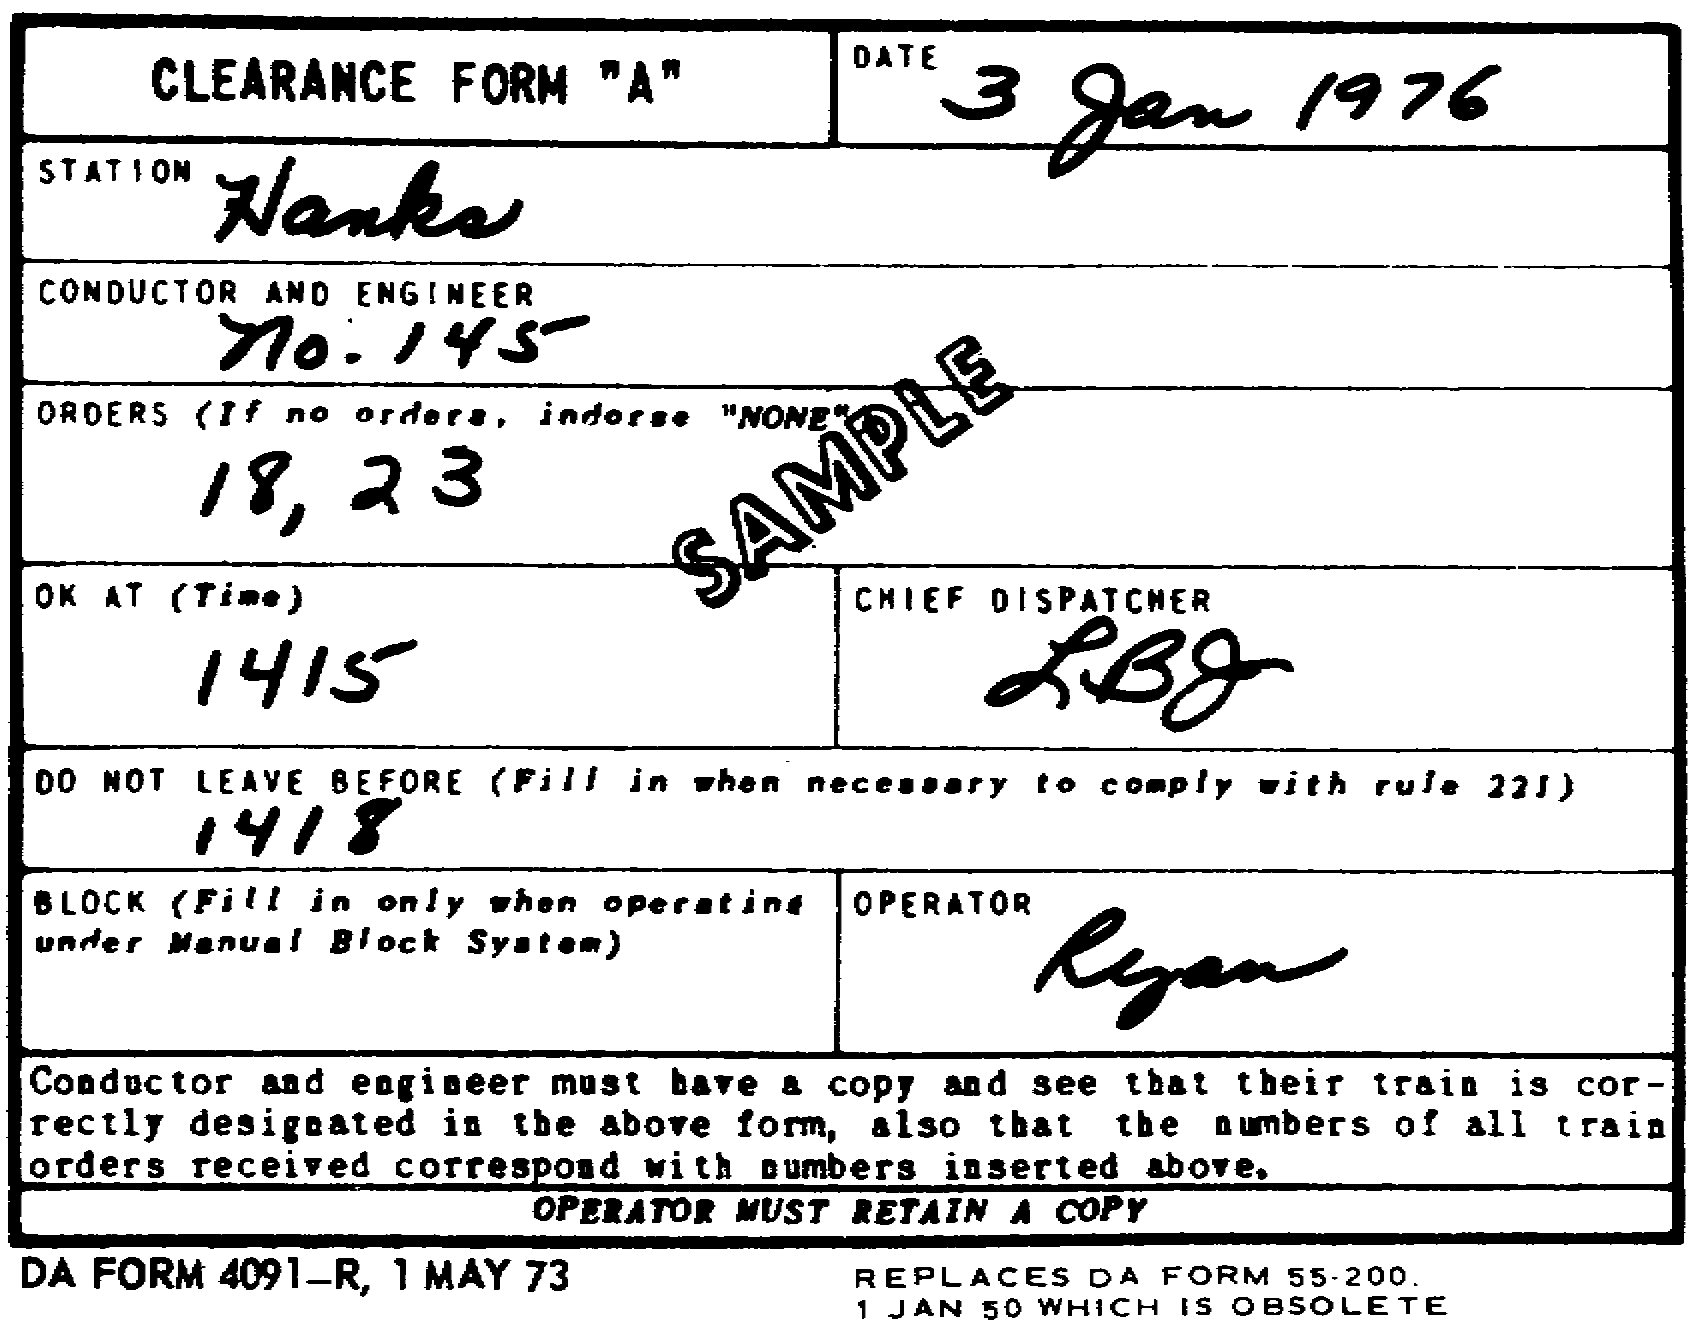 CLEARANCE FORM "A"
DATE 3 Jan 1976
STATION Hanks
CONDUCTOR AND ENGINEER
No. 145
ORDERS (If no orders, indorse "NONE")
18, 23
SAMPLE
OK AT (Time)
1415
CHIEF DISPATCHER
LBJ
DO NOT LEAVE BEFORE (Fill in when necessary to comply with rule 221)
1418
BLOCK (Fill in only when operating
under Manual Block System)
OPERATOR
Ryan
Conductor and engineer must have a copy and see that their train is cor-
rectly designated in the above form, also that the numbers of all train
orders received correspond with numbers inserted above.
OPERATOR MUST RETAIN A COPY
DA FORM 4091-R, 1 MAY 73
REPLACES DA FORM 55-200.
1 JAN 50 WHICH IS OBSOLETE